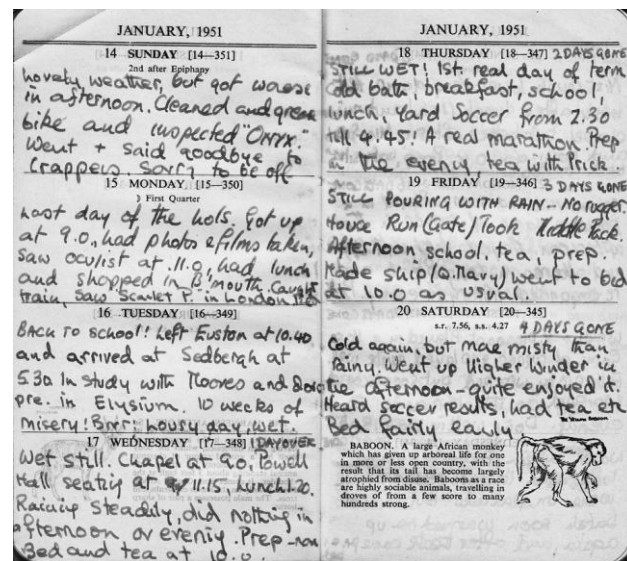 JANUARY, 1951
14 SUNDAY [14—351]
2nd after Epiphany
Lovely weather, but got worse
in afternoon. Cleaned and grease
bike and inspected "ONYX".
Went + said goodbye to
Crappers. Sorry to be off
15 MONDAY [15—350]
☽ First Quarter
Last day of the hols. Got up
at 9.0, had photos & films taken,
saw oculist at 11.0, had lunch
and shopped in B'mouth. Caught
train, Saw Scarlet P. in London
16 TUESDAY [16—349]
BACK TO SCHOOL! Left Euston at 10.40
and arrived at Sedbergh at
5.30 In study with Moores and
pre. in Elysium. 10 weeks of
misery! Brrr! Lousy day, wet.
17 WEDNESDAY [17—348] 1 DAY OVER
Wet still. Chapel at 9.0, Powell
Hall seating at 11.15. Lunch 1.20.
Raining steadily, did nothing in
afternoon or evening. Prep - non
Bed and tea at 10.0.
JANUARY, 1951
18 THURSDAY [18—347] 2 DAYS GONE
STILL WET! 1st. real day of term
Cold bath, breakfast, school,
lunch, Yard Soccer from 2.30
till 4.45! A real marathon. Prep
in the evening, tea with Prick.
19 FRIDAY [19—346] 3 DAYS GONE
STILL POURING WITH RAIN - No rugger.
House Run (Gate) Took
Afternoon school, tea, prep.
Made ship (Q. Mary) went to bed
at 10.0 as usual.
20 SATURDAY [20—345]
s.r. 7.56, s.s. 4.27 4 DAYS GONE
Cold again, but more misty than
rainy. Went up Higher Winder in
the afternoon - quite enjoyed it.
Heard soccer results, had tea etc
Bed fairly early
BABOON. A large African monkey
which has given up arboreal life for one
in more or less open country, with the
result that its tail has become largely
atrophied from disuse. Baboons as a race
are highly sociable animals, travelling in
droves of from a few score to many
hundreds strong.